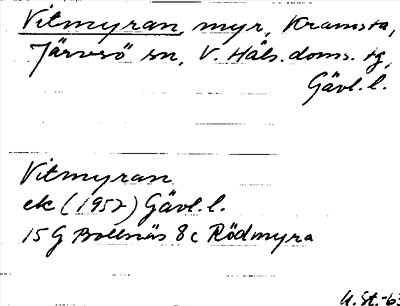 Vitmyran, myr, Kramsta,
Järvsö sn, V. Häls. doms. tg,
Gävl. l.
Vitmyran
ek (1957) Gävl. l.
15 G Bollnäs 8 c Rödmyra
U. St. -63